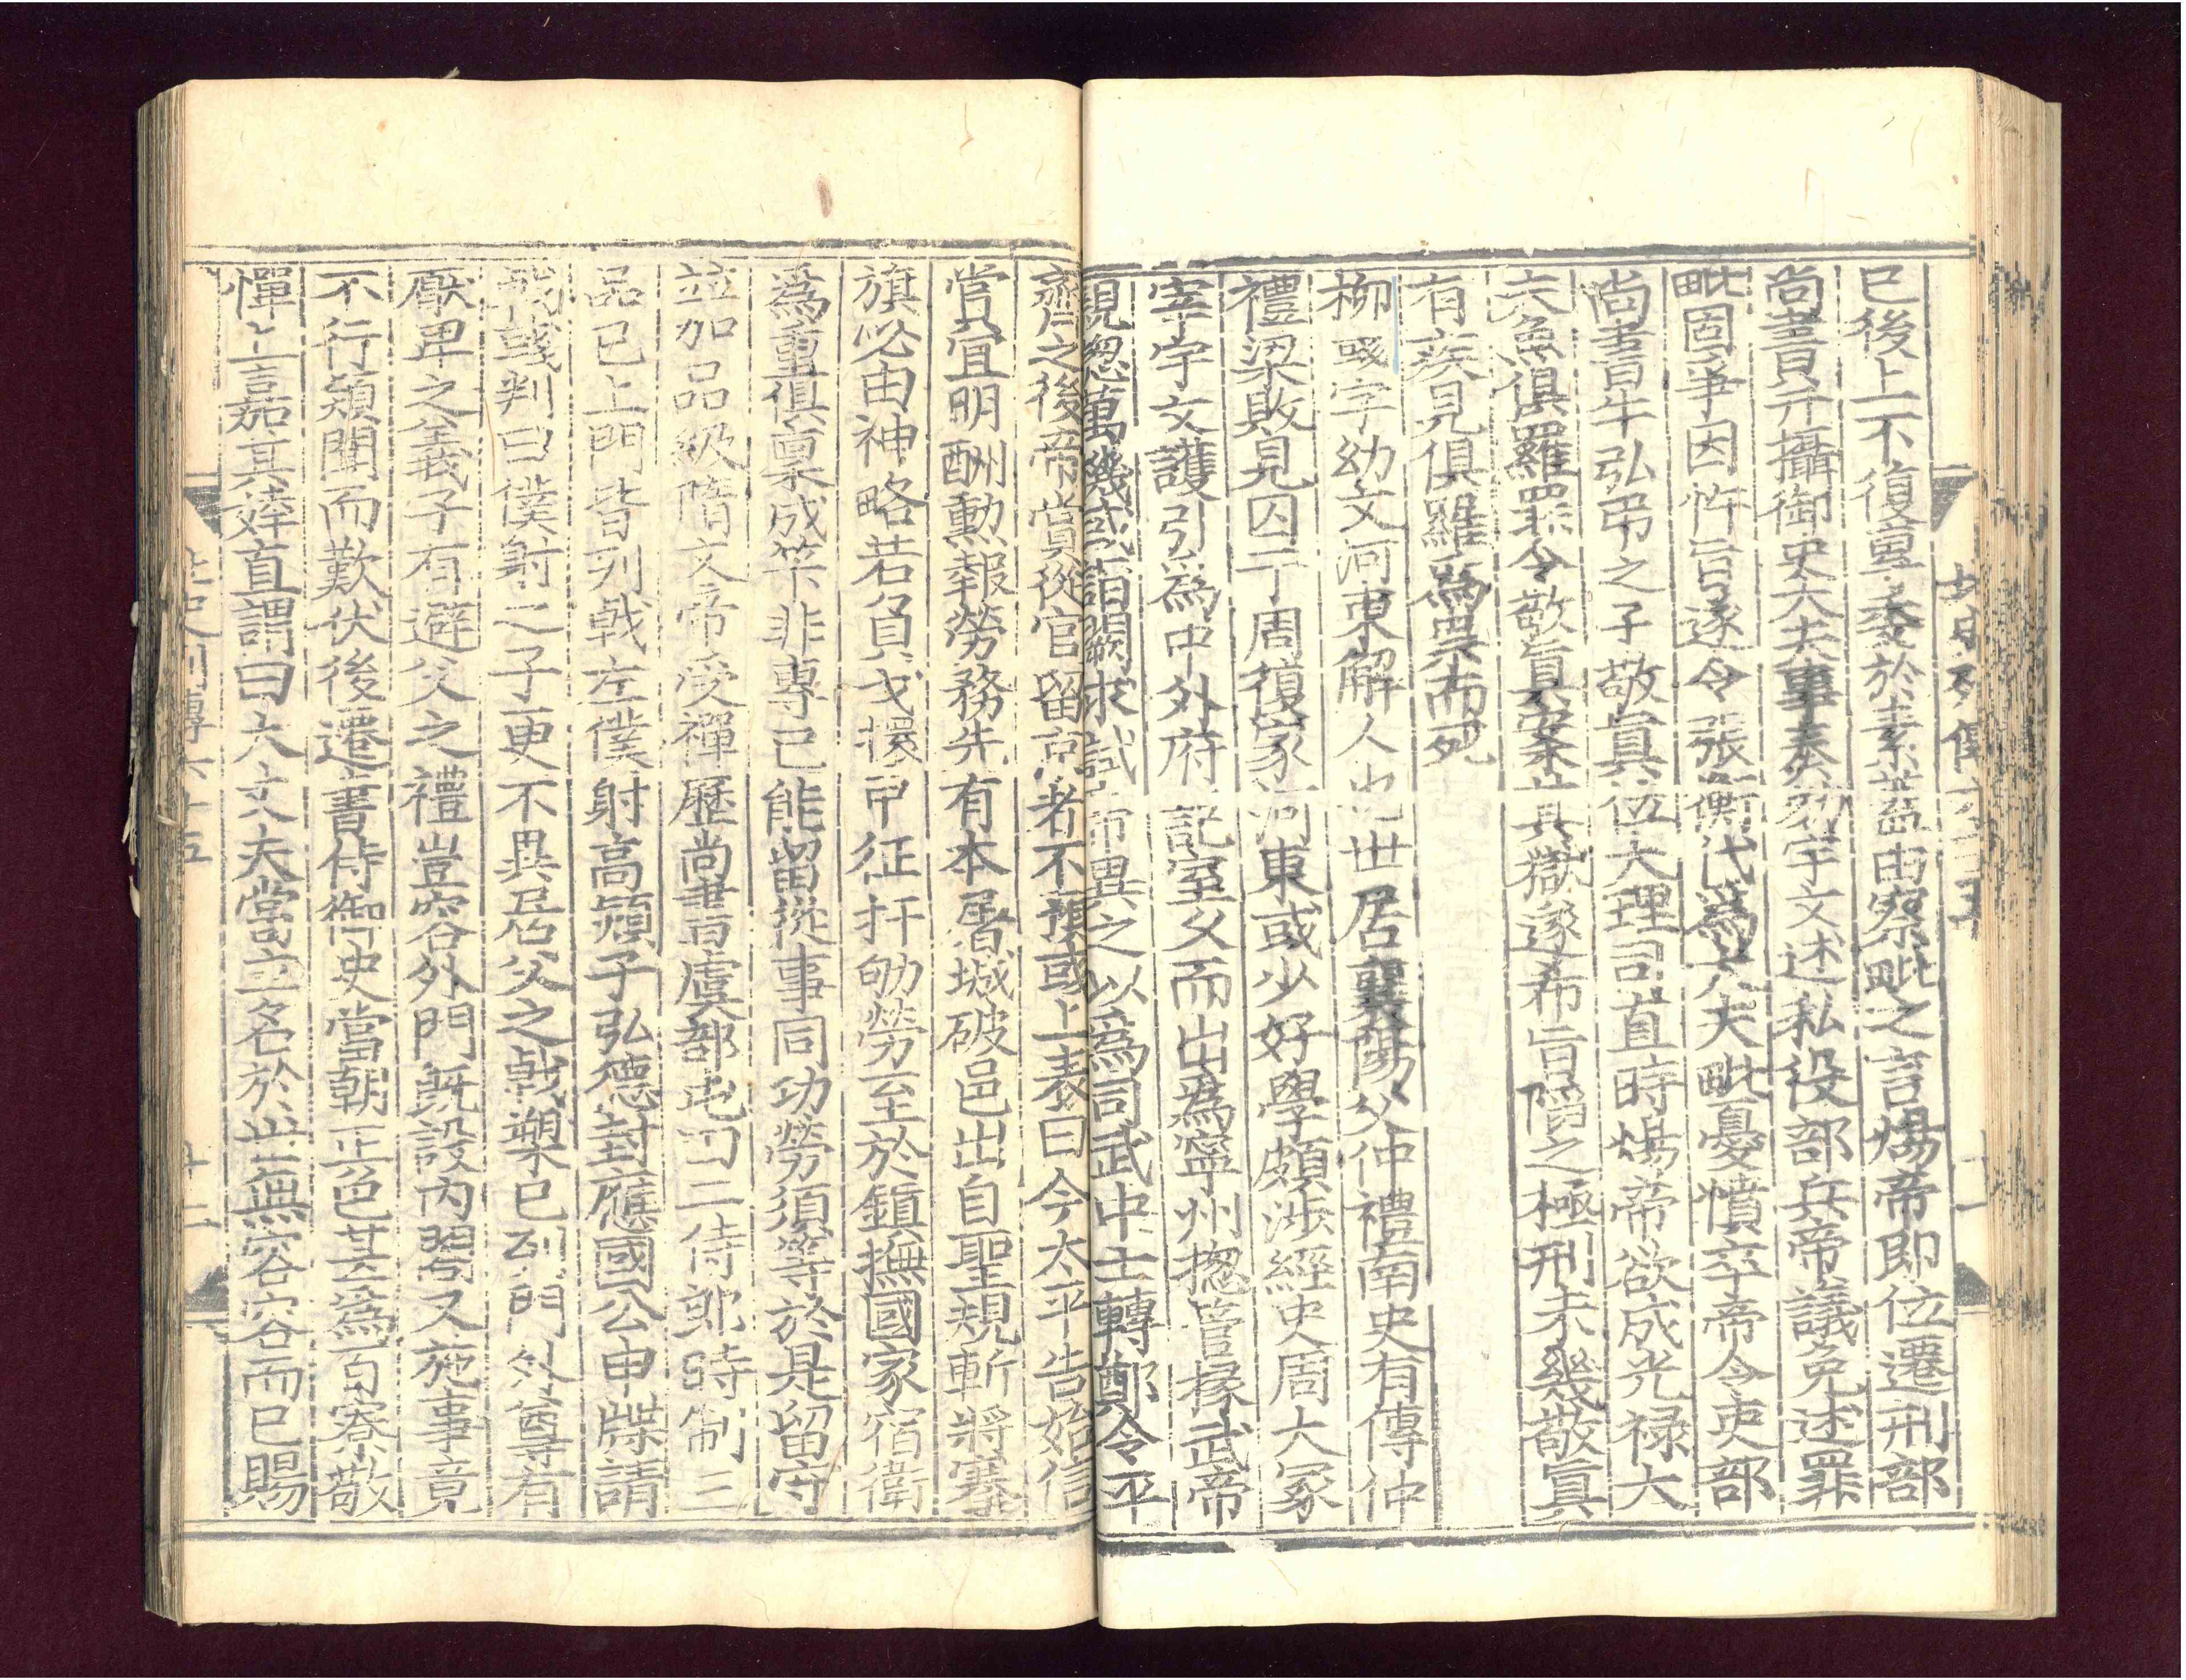 已後上不復專委於素蓋由察毗之言煬帝即位遷刑部
尚書并攝御史大夫事奏劾宇文述私役部兵帝議免述罪
毗固爭因忤旨遂令張衡代爲大夫毗憂憤卒帝令吏部
尚書牛弘弔之子敬眞位大理司直時煬帝欲成光禄大
夫魚俱羅罪令敬眞案其獄遂希旨陷之極刑未幾敬眞
有疾見俱羅爲祟而死
柳彧字幼文河東解人也世居襄陽父仲禮南史有傳仲
禮梁敗見囚于周復家河東彧少好學頗涉經史周大冢
宰宇文護引爲中外府記室久而出爲寧州揔管掾武帝
親揔萬機彧詣闕求試帝異之以爲司武中士轉鄭令平
齊之後帝賞從官留京者不預彧上表曰今太平告始信
賞宜明酬勳報勞務先有本屠城破邑出自聖規斬將搴
旗必由神略若負戈擐甲征扞劬勞至於鎮撫國家宿衛
爲重俱禀成筭非專己能留從事同功勞須等於是留守
竝加品級隋文帝受禪歷尚書虞部屯田二侍郎時制三
品已上門皆列戟左僕射高熲子弘德封應國公申牒請
戟彧判曰僕射之子更不異居父之戟槊已列門外尊有
厭卑之義子有避父之禮豈容外門既設内閤又施事竟
不行熲聞而歎伏後遷書侍御史當朝正色甚爲百寮敬
憚上嘉其婞直謂曰大丈夫當立名於世無容容而已賜
北史列傳六十五
十二